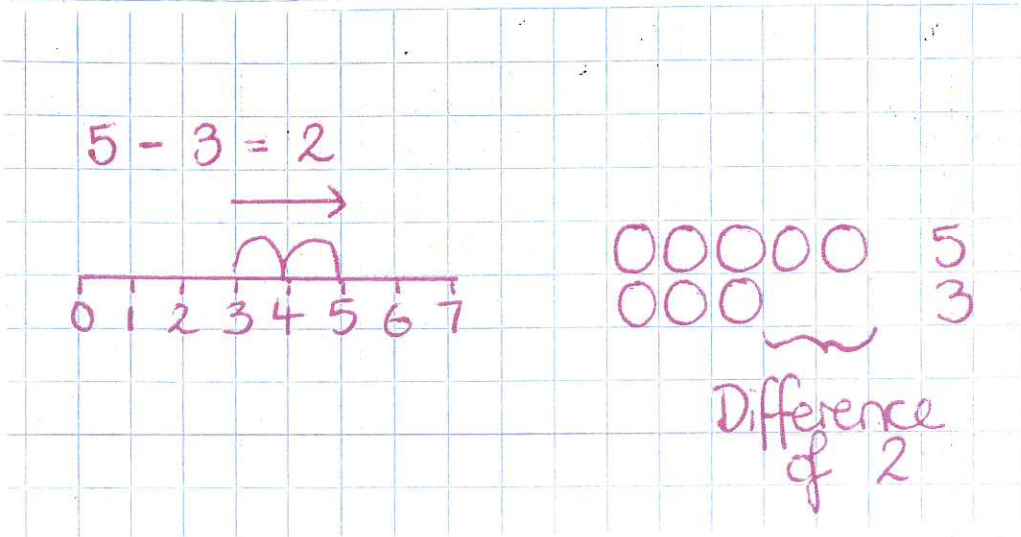 5 - 3 = 2
0 1 2 3 4 5 6 7
5
3
Difference
of 2